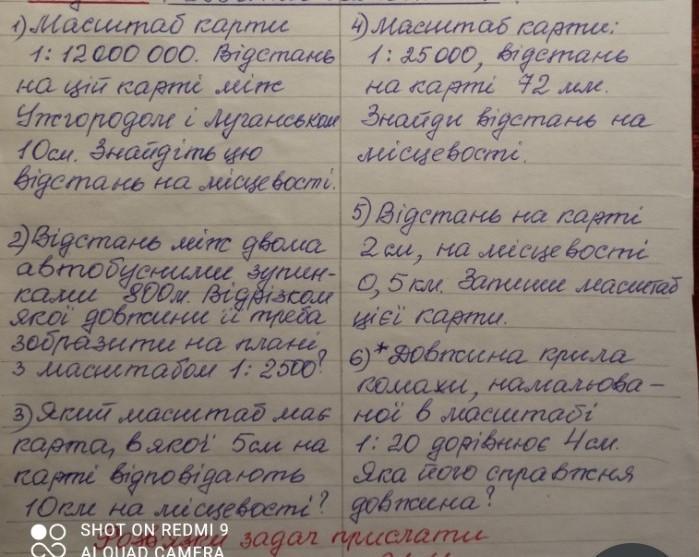 1) Масштаб карти
1: 12000 000. Відстань
на цій карті між
Ужгородом і Луганськом
10см. Знайдіть цю
відстань на місцевості.
2) Відстань між двома
автобусними зупин-
ками 800м. Відрізком
якої довжини її треба
зобразити на плані
з масштабом 1: 2500?
3) Який масштаб має
карта, в якої 5см на
карті відповідають
10км на місцевості?
4) Масштаб карти:
1: 25000, відстань
на карті 72 мм.
Знайди відстань на
місцевості.
5) Відстань на карті
2см, на місцевості
0,5км. Запиши масштаб
цієї карти.
6)* Довжина крила
комахи, намальова-
ної в масштабі
1: 20 дорівнює 4см.
Яка його справжня
довжина?
Розв'язки задач прислати
SHOT ON REDMI 9
AI QUAD CAMERA